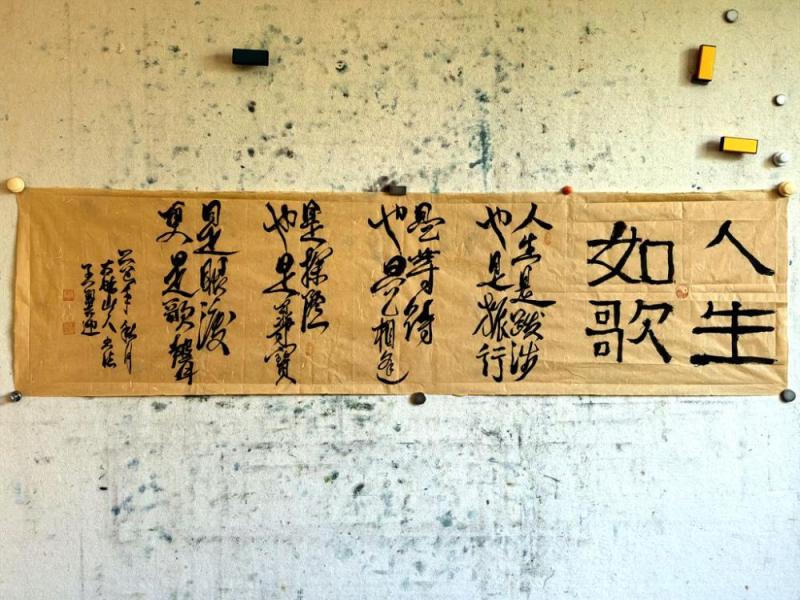 人生
如歌
人生是跋涉
也是旅行
是等待
也是相逢
是探險
也是尋寶
是眼淚
更是歌聲
年秋月
山人